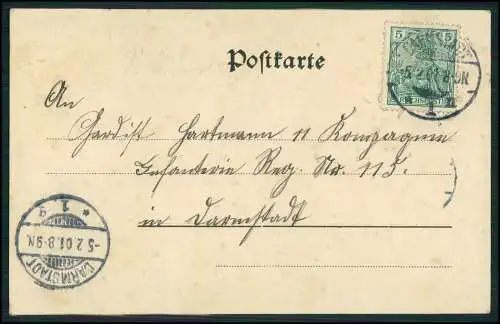 5 5
Postkarte
An
Gardist Hartmann 11 Kompagnie
Infanterie Reg. Nr. 115.
in Darmstadt
* 1 g
-5.2.01.8-9N.
DARMSTADT